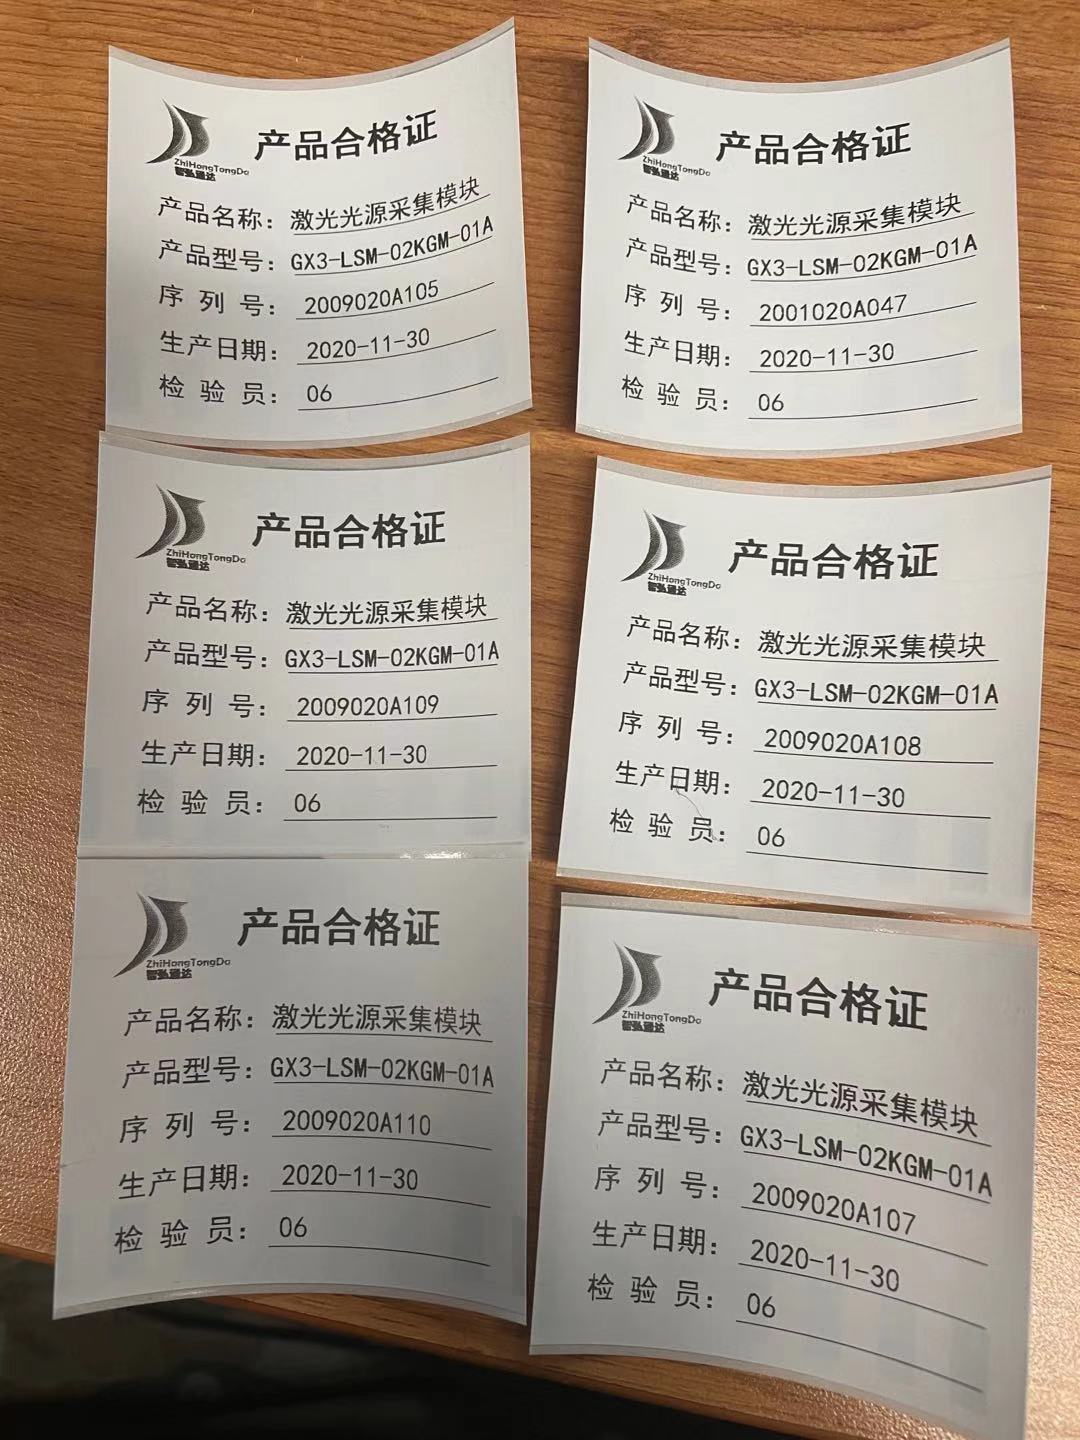 ZhiHongTongDa
智弘通达
产品合格证
产品名称：激光光源采集模块
产品型号：GX3-LSM-02KGM-01A
序 列 号：2009020A105
生产日期：2020-11-30
检 验 员：06
ZhiHongTongDa
智弘通达
产品合格证
产品名称：激光光源采集模块
产品型号：GX3-LSM-02KGM-01A
序 列 号：2001020A047
生产日期：2020-11-30
检 验 员：06
ZhiHongTongDa
智弘通达
产品合格证
产品名称：激光光源采集模块
产品型号：GX3-LSM-02KGM-01A
序 列 号：2009020A109
生产日期：2020-11-30
检 验 员：06
ZhiHongTongDa
智弘通达
产品合格证
产品名称：激光光源采集模块
产品型号：GX3-LSM-02KGM-01A
序 列 号：2009020A108
生产日期：2020-11-30
检 验 员：06
ZhiHongTongDa
智弘通达
产品合格证
产品名称：激光光源采集模块
产品型号：GX3-LSM-02KGM-01A
序 列 号：2009020A110
生产日期：2020-11-30
检 验 员：06
ZhiHongTongDa
智弘通达
产品合格证
产品名称：激光光源采集模块
产品型号：GX3-LSM-02KGM-01A
序 列 号：2009020A107
生产日期：2020-11-30
检 验 员：06